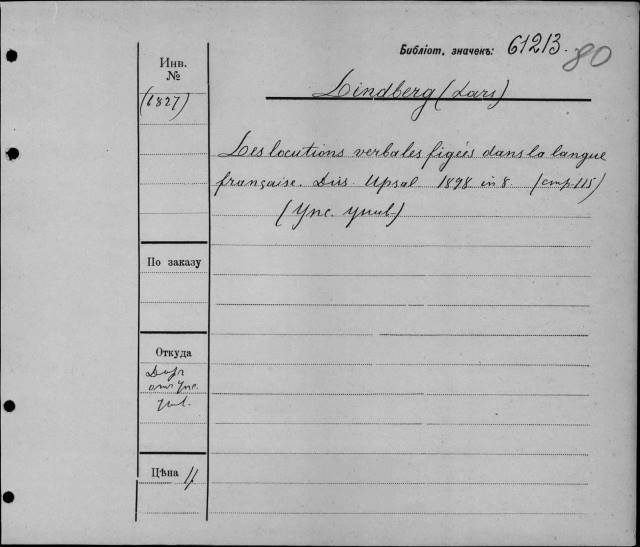 Библіот. значекъ: 61213.
80
Инв.
№
(1827)
Lindberg (Lars)
Les locutions verbales figées dans la langue
française. Diss. Upsal. 1898. in 8. (стр. 115)
(Упс. унив.)
По заказу
Откуда
Даръ
отъ Упс.
унив.
Цѣна